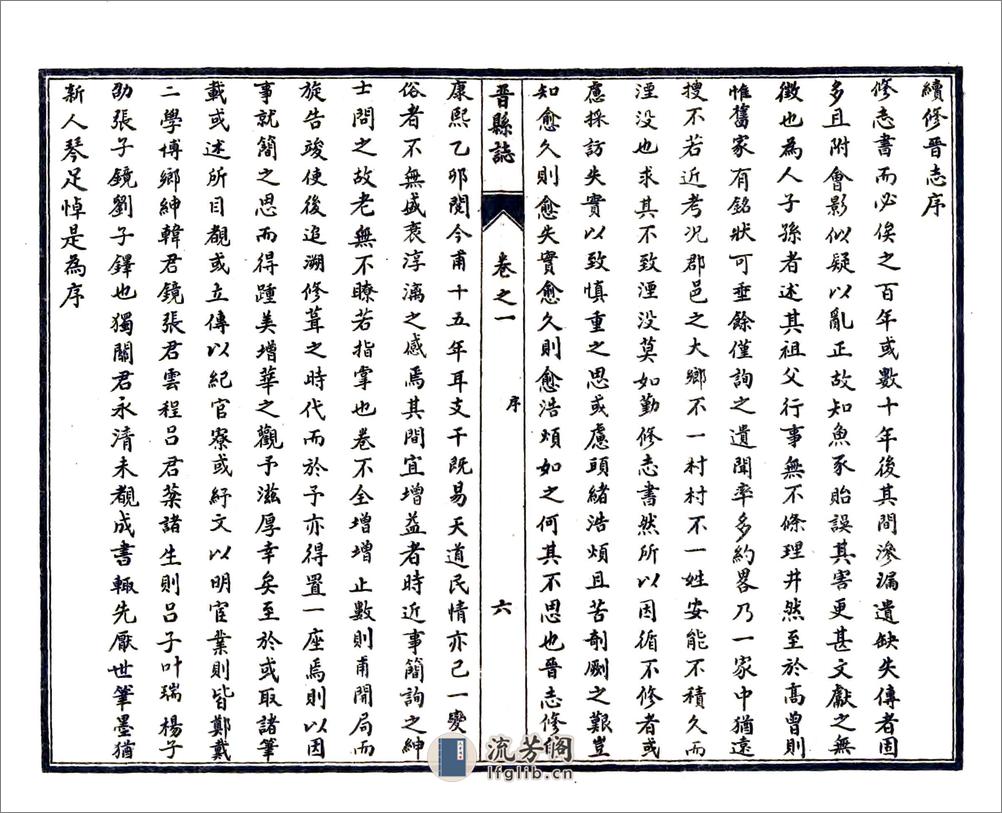 續修晉志序
修志書而必俟之百年或數十年後其間滲漏遺缺失傳者固
多且附會影似疑以亂正故知魚豕貽誤其害更甚文獻之無
徵也為人子孫者述其祖父行事無不條理井然至於高曾則
惟舊家有銘狀可垂餘僅詢之遺聞率多約畧乃一家中猶遠
搜不若近考況郡邑之大鄉不一村村不一姓安能不積久而
湮没也求其不致湮没莫如勤修志書然所以因循不修者或
慮採訪失實以致慎重之思或慮頭緒浩煩且苦剞劂之艱豈
知愈久則愈失實愈久則愈浩煩如之何其不思也晉志修自
晉縣誌
卷之一
序
六
康熙乙卯閱今甫十五年耳支干既易天道民情亦已一變
俗者不無盛衰淳漓之感焉其間宜增益者時近事簡詢之紳
士問之故老無不瞭若指掌也卷不全增增止數則甫開局而
旋告竣使後追溯修葺之時代而於予亦得置一座焉則以因
事就簡之思而得踵美增華之觀予滋厚幸矣至於或取諸筆
載或述所目覩或立傳以紀官寮或紓文以明宦業則皆鄭戴
二學博鄉紳韓君鏡張君雲程呂君蘂諸生則呂子叶瑞楊子
劭張子鏡劉子鐸也獨關君永清未覩成書輒先厭世筆墨猶
新人琴足悼是為序
流芳阁
lfglib.cn